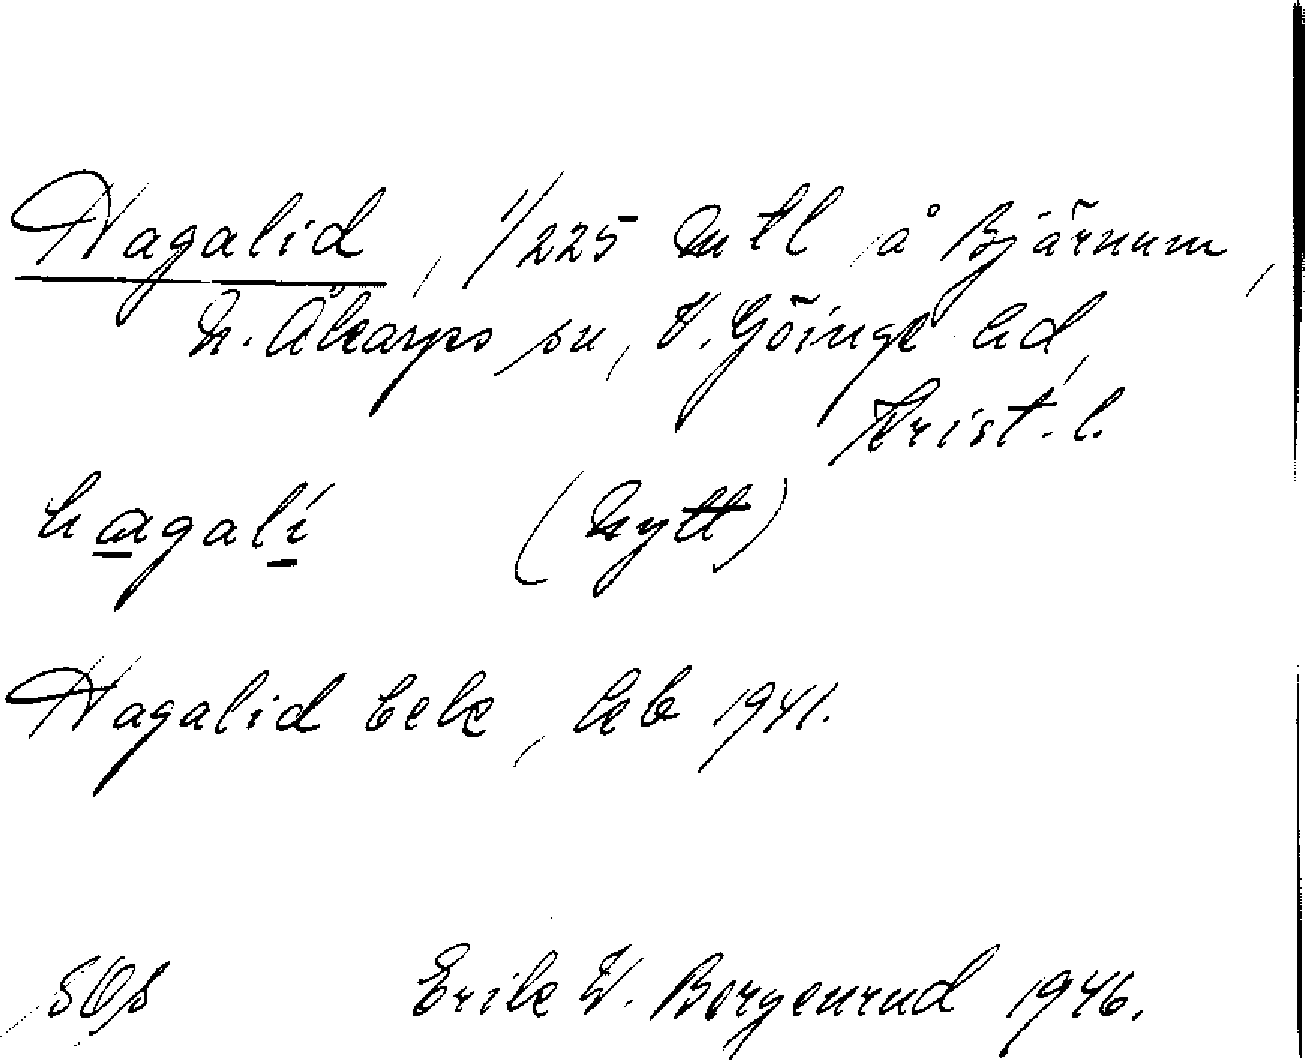 Hagalid, 1/225 mtl å Bjärnum,
N. Åkarps sn, V. Göinge hd,
Krist. l.
hagalí (Nytt)
Hagalid bek, kb 1941.
Erik W. Borgenrud 1946.